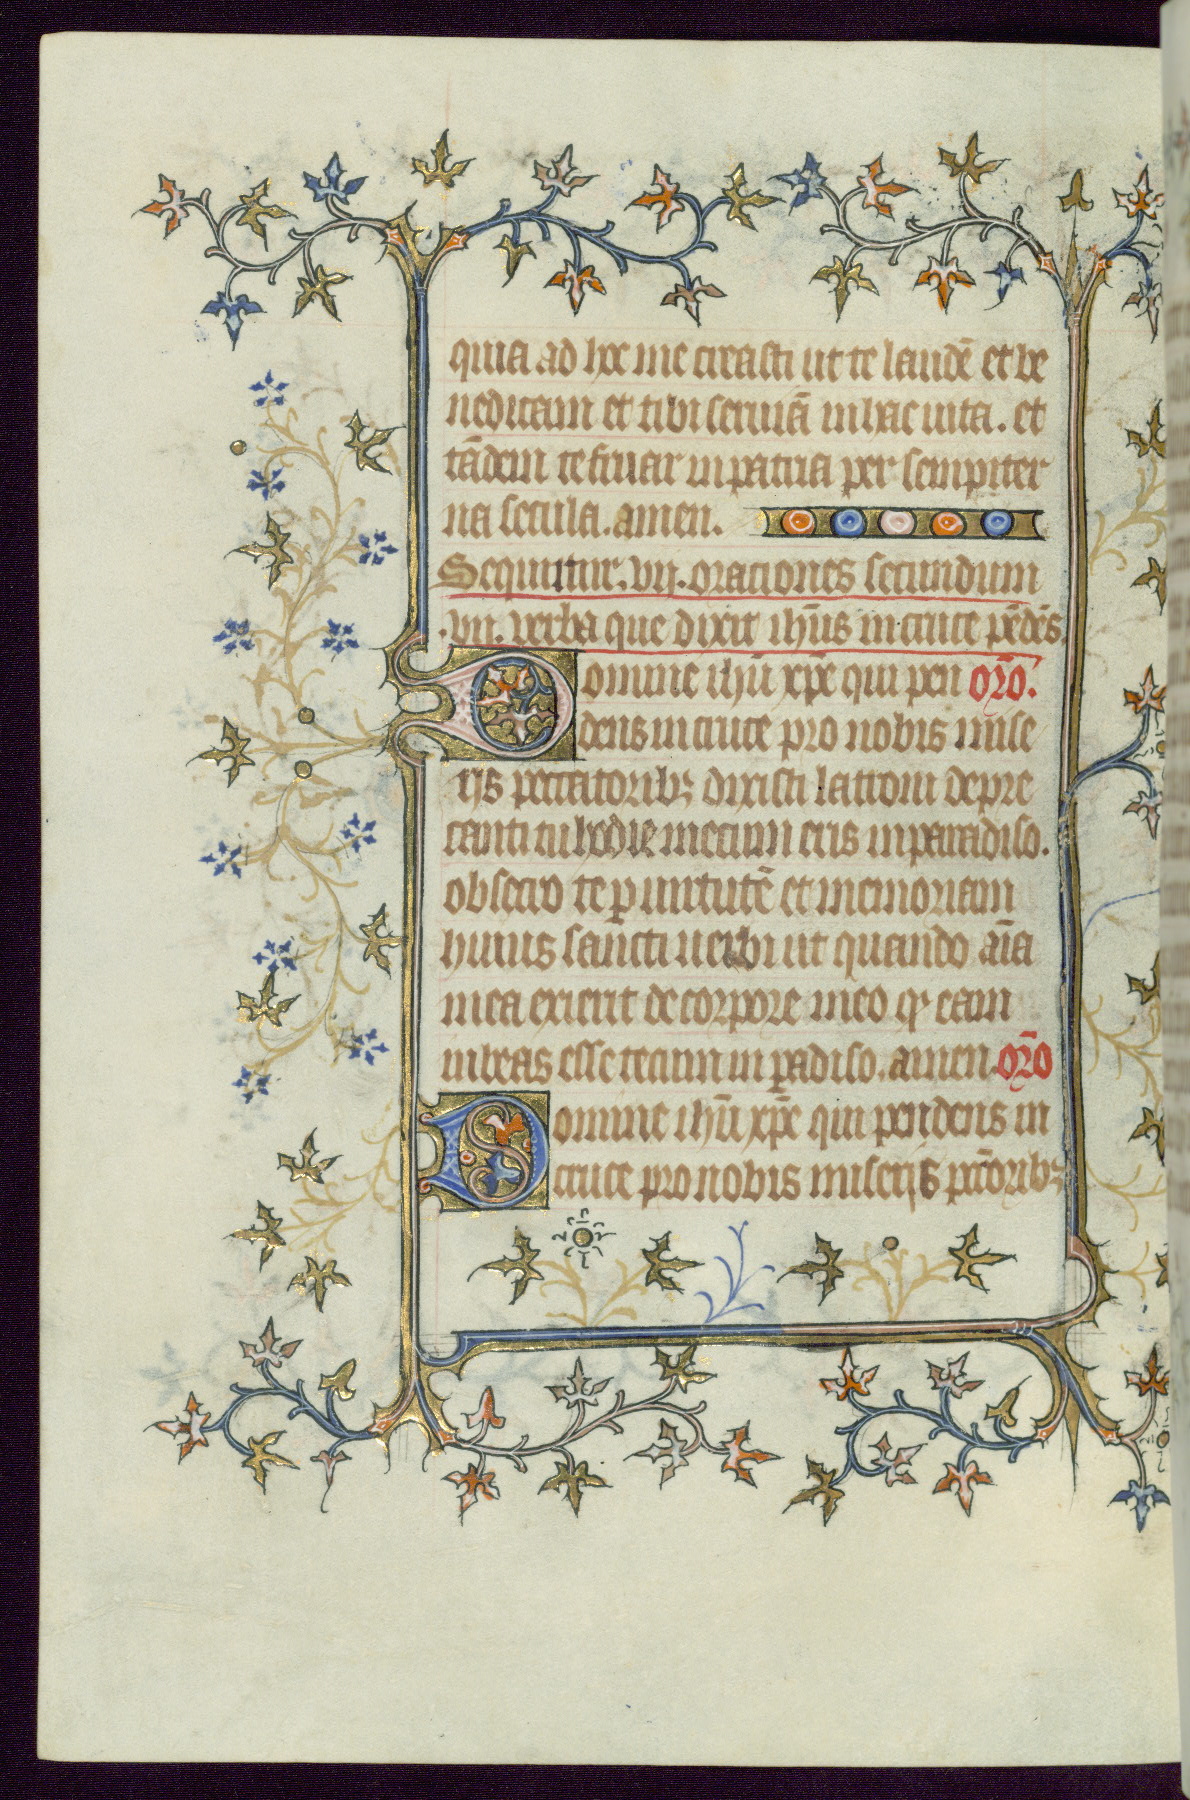 quia ad hoc me creasti ut te laudē et be
nedicam et tibi seruiā in hac uita. et
tādem te fruar in patria per sempiter
na secula. amen.
Sequitur. vij. orationes secundum
.vij. verba que dixit ihūs in cruce pēdēs
Domine ihū xp̄e qui pen orō.
dens in cruce pro nobis mise
rijs peccatoribꝫ dixisti latroni depre
canti tu hodie mecum eris in paradiso.
obsecro te ꝑ uirtutē et memoriam
huius sancti uerbi ut quando aīa
mea exierit de corpore meo qͥ eam
iubeas esse tecum in ꝑadiso. amen. orō
Domine ihū xp̄e qui pendens in
cruce pro nobis miserijs pctōribꝫ